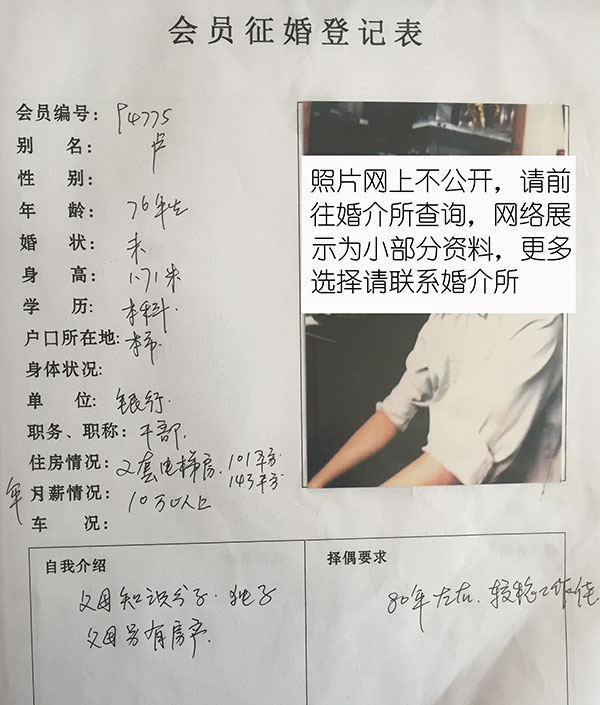 会员征婚登记表
会员编号: P4775
别 名: 卢
性 别:
年 龄: 76年生
婚 状: 未
身 高: 1.71米
学 历: 本科.
户口所在地: 本市.
身体状况:
单 位: 银行.
职务、职称: 干部.
住房情况: 2套电梯房. 101平方
143平方
年
月薪情况: 10万以上
车 况:
照片网上不公开，请前
往婚介所查询，网络展
示为小部分资料，更多
选择请联系婚介所
自我介绍
父母知识分子. 独子
父母另有房产.
择偶要求
80年左右. 较稳工作